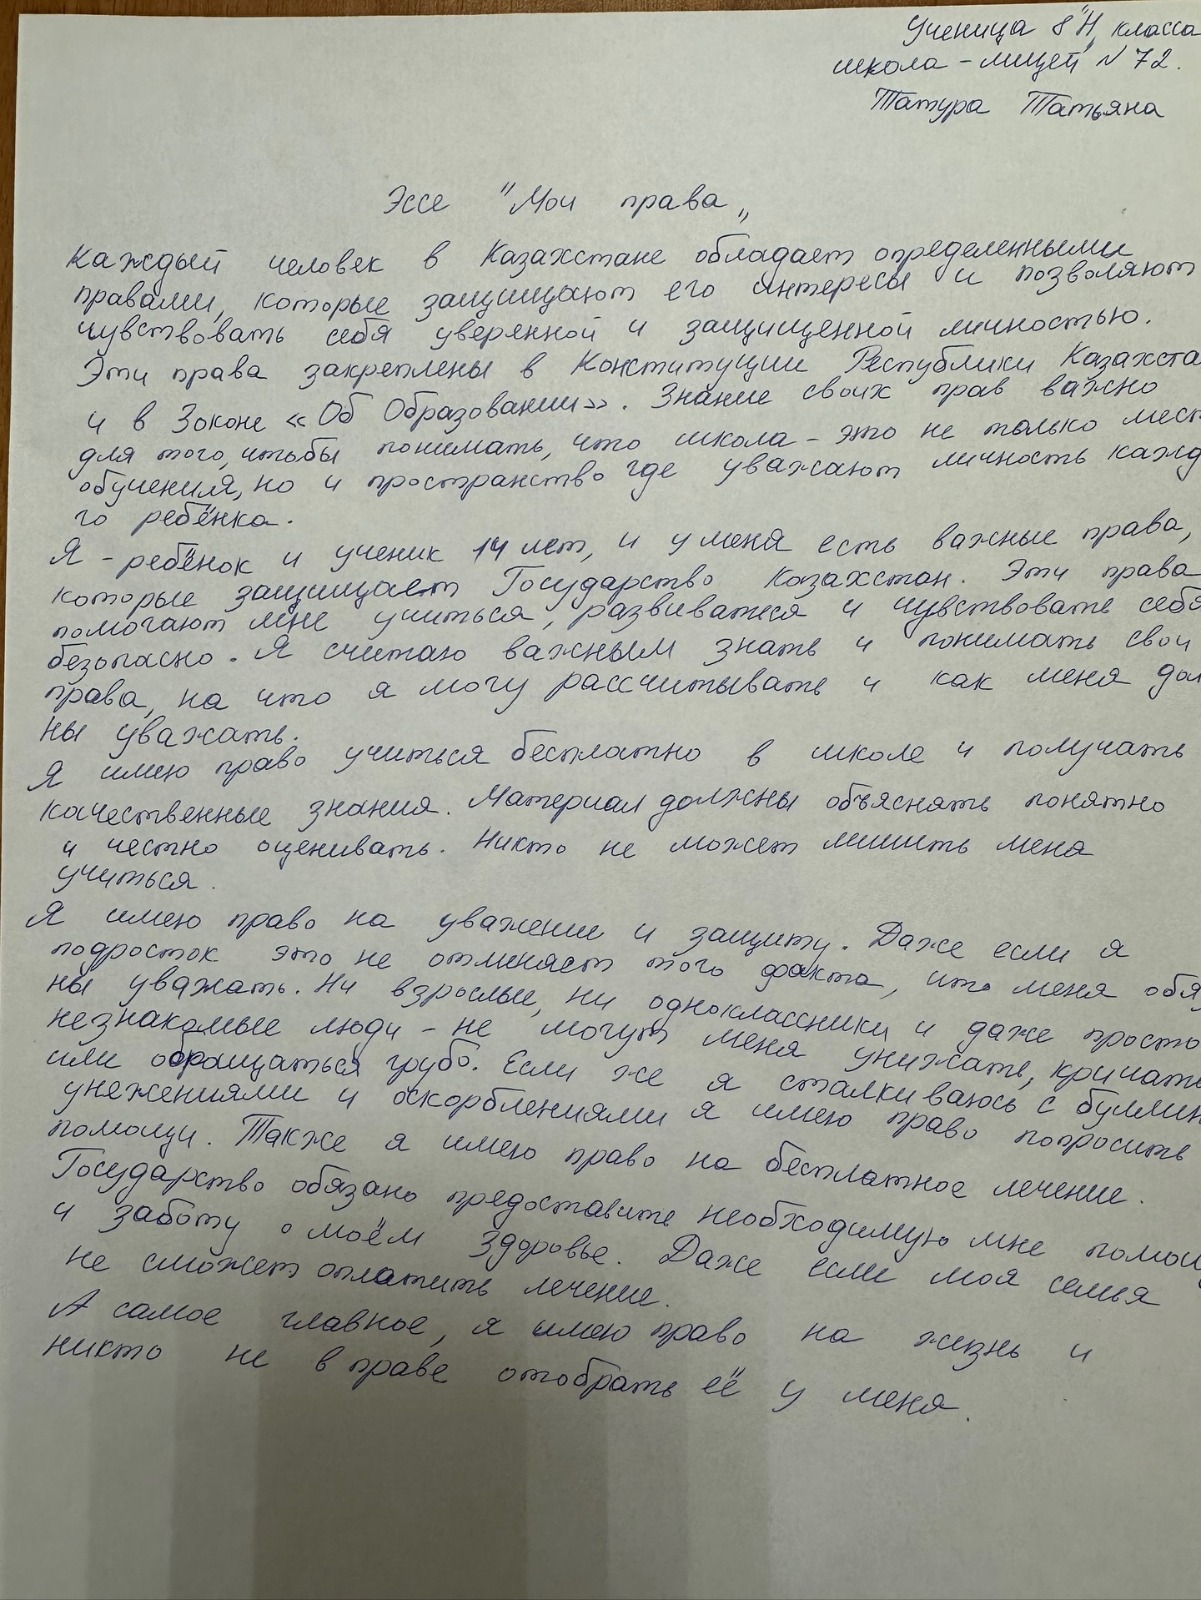 Ученица 8 "Н" класса
школа - лицей N 72.
Татура Татьяна
Эссе "Мои права"
Каждый человек в Казахстане обладает определенными
правами, которые защищают его интересы и позволяют
чувствовать себя уверенной и защищенной личностью.
Эти права закреплены в Конституции Республики Казахста
и в Законе «Об Образовании». Знание своих прав важно
для того, чтобы понимать, что школа - это не только мест
обучения, но и пространство где уважают личность кажд
го ребёнка.
Я - ребёнок и ученик 14 лет, и у меня есть важные права,
которые защищает Государство Казахстан. Эти права
помогают мне учиться, развиваться и чувствовать себя
безопасно. Я считаю важным знать и понимать свои
права, на что я могу рассчитывать и как меня дол
ны уважать.
Я имею право учиться бесплатно в школе и получать
качественные знания. Материал должны объяснять понятно
и честно оценивать. Никто не может лишить меня
учиться.
Я имею право на уважение и защиту. Даже если я
подросток это не отменяет того факта, что меня обя
ны уважать. Ни взрослые, ни одноклассники и даже просто
незнакомые люди - не могут меня унижать, кричать
или обращаться грубо. Если же я сталкиваюсь с буллин
унежениями и оскорблениями я имею право попросить
помощи. Также я имею право на бесплатное лечение.
Государство обязано предоставить необходимую мне помощ
и заботу о моём здоровье. Даже если моя семья
не сможет оплатить лечение.
А самое главное, я имею право на жизнь и
никто не в праве отобрать её у меня.